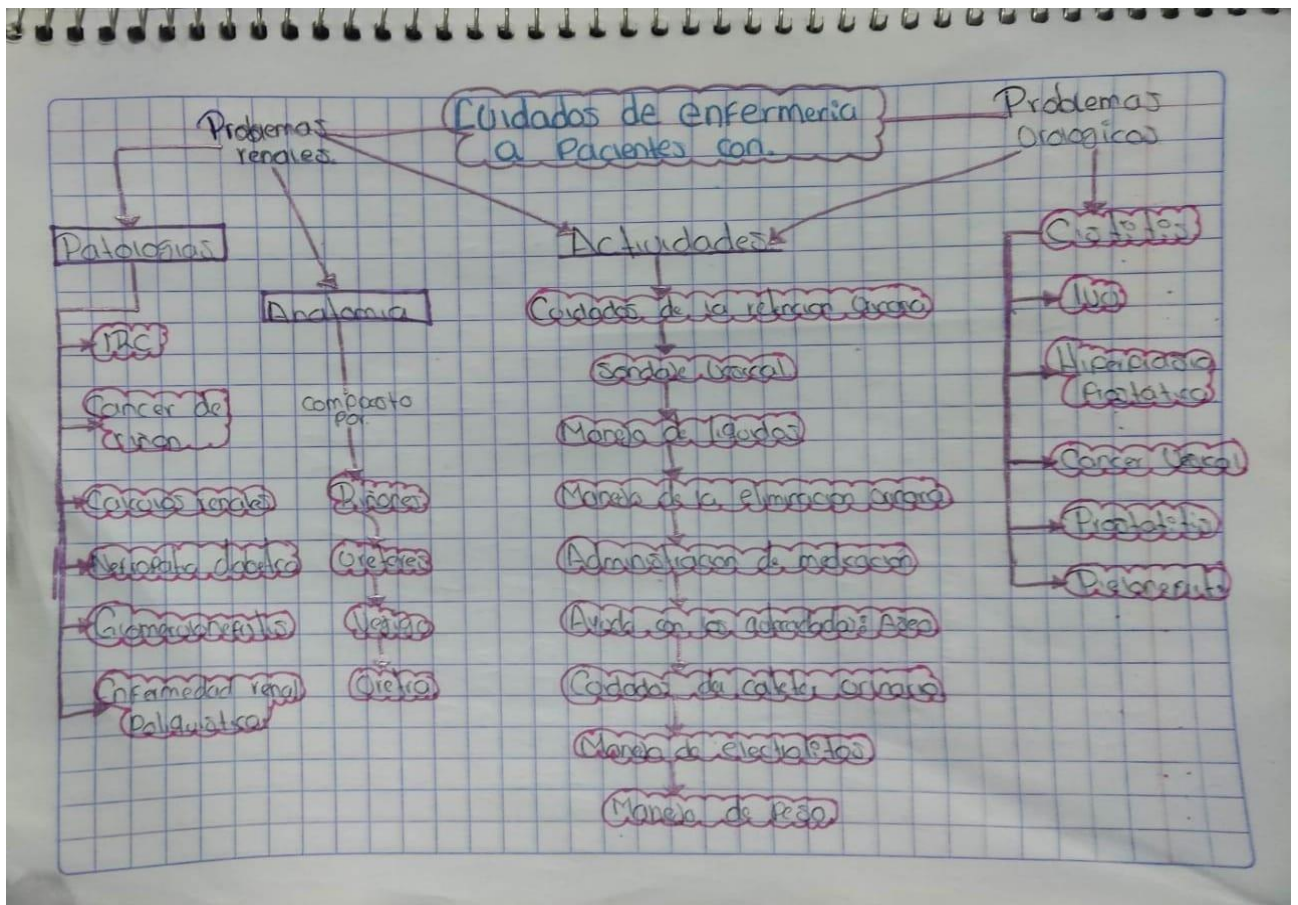 Cuidados de enfermeria
a Pacientes con.
Problemas
renales.
Patologias
IRC
Cancer de
riñon
Calculos renales
Nefropatia diabetica
Glomerulonefritis
Enfermedad renal
Poliquistica
Anatomia
compuesto
por
Riñones
Ureteres
Vejiga
Uretra
Actividades
Cuidados de la retencion Urinaria
Sondaje Vesical
Manejo de liquidos
Manejo de la eliminacion urinaria
Administracion de medicacion
Ayuda con los autocuidados: Aseo
Cuidados del cateter urinario
Manejo de electrolitos
Manejo de Peso
Problemas
Urologicos
Cistitis
Hiperplasia
Prostatica
Cancer Vesical
Prostatitis